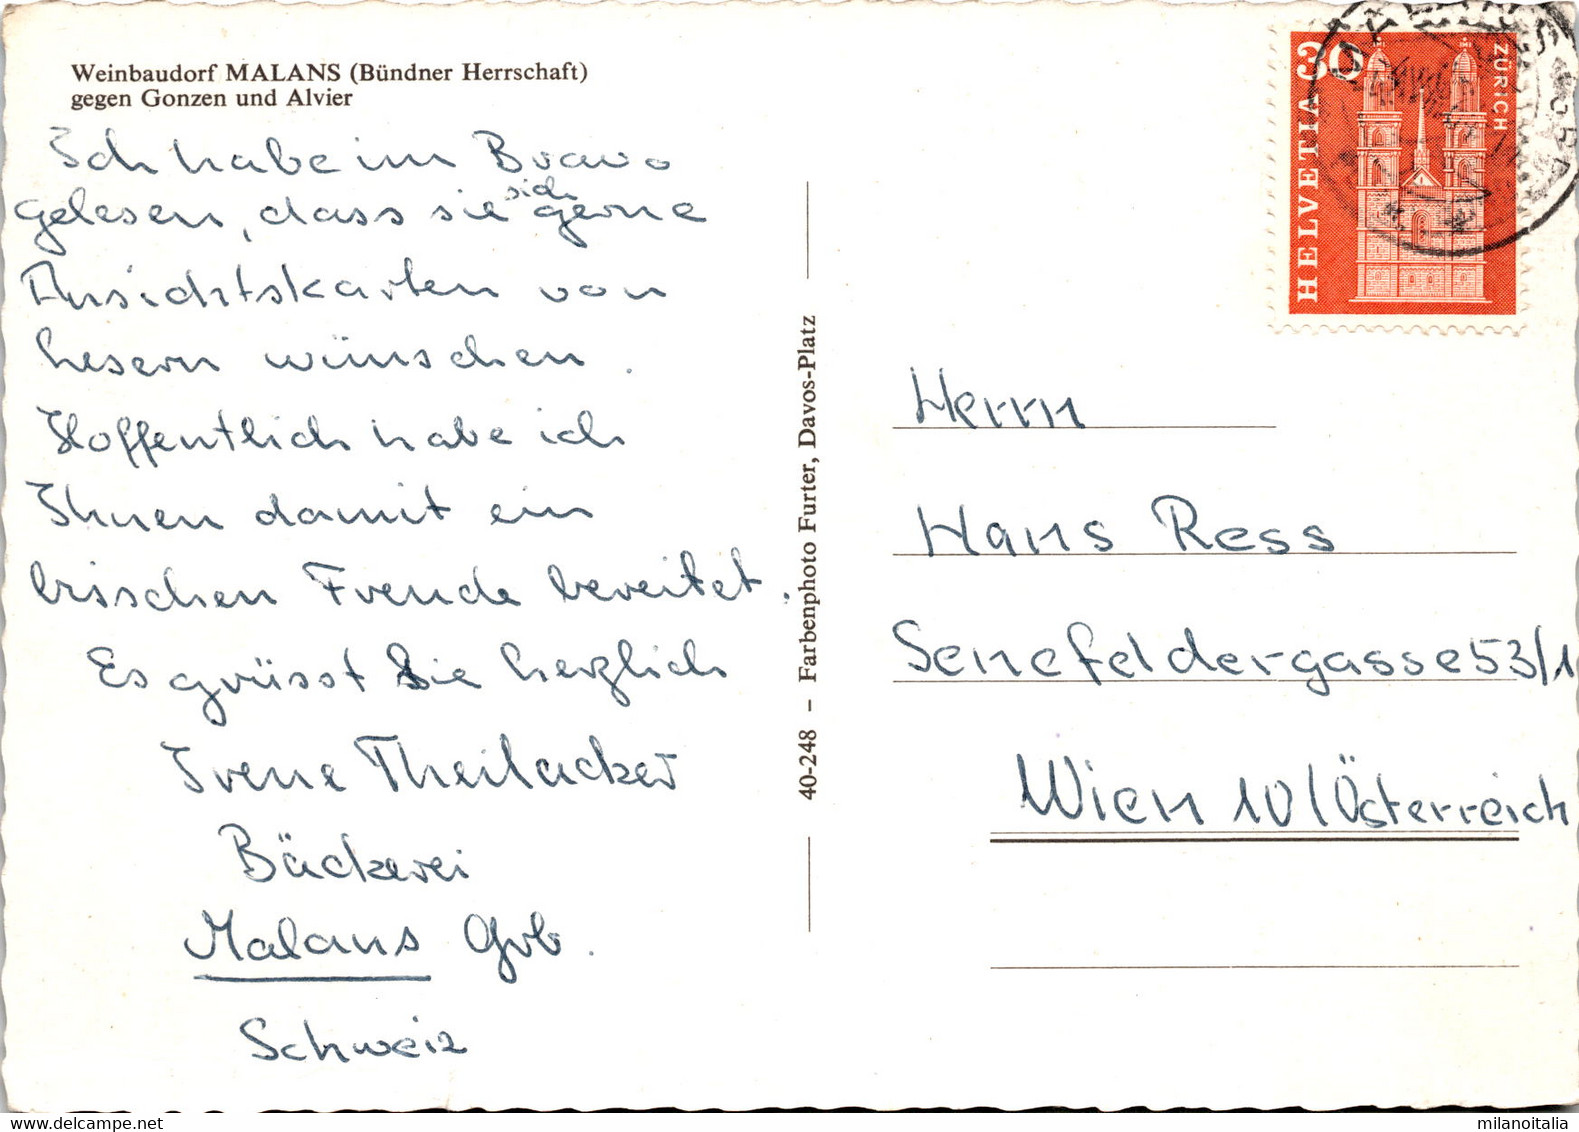 Weinbaudorf MALANS (Bündner Herrschaft)
gegen Gonzen und Alvier
Ich habe im Bravo
gelesen, dass sie sich gerne
Ansichtskarten von
Lesern wünschen.
Hoffentlich habe ich
Ihnen damit ein
bisschen Freude bereitet.
Es grüsst Sie herzlich
Irene Theilacker
Bäckerei
Malans Grb.
Schweiz
40-248 – Farbenphoto Furter, Davos-Platz
HELVETIA 30
ZÜRICH
Herrn
Hans Ress
Senefeldergasse 53/1
Wien 10/Österreich
milanoitalia